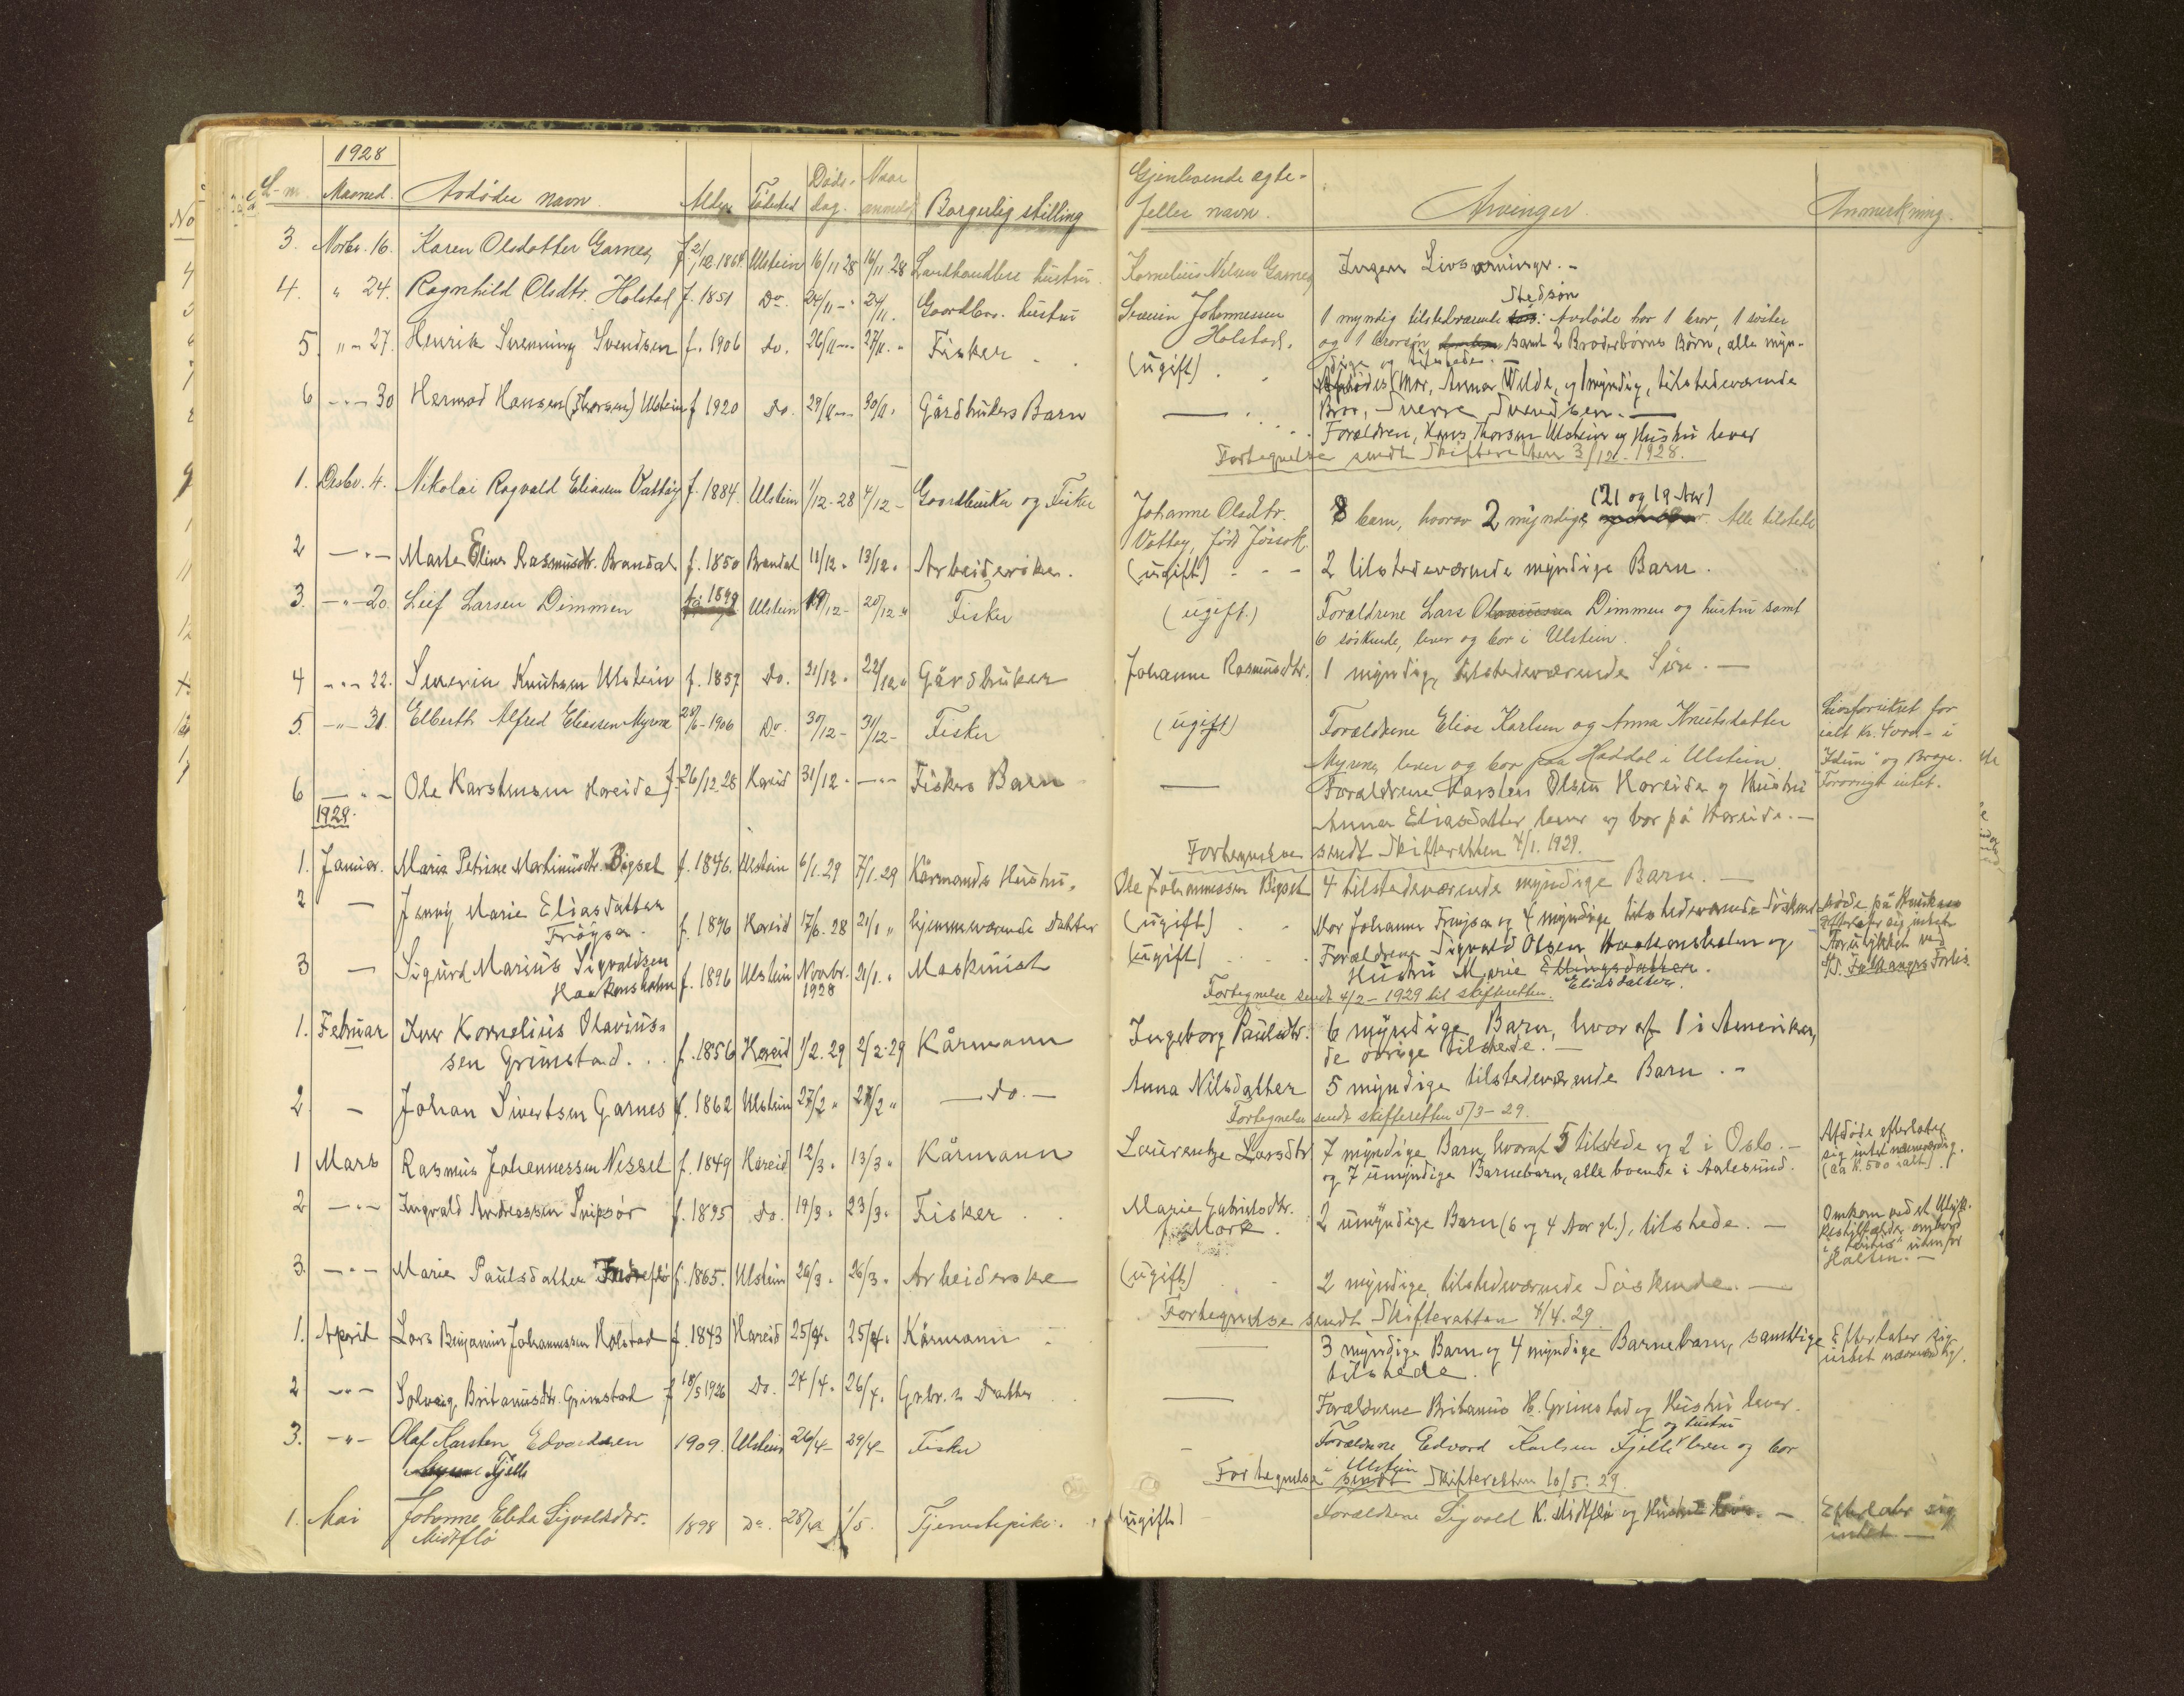 1928
L-nr. Maaned. Avdødes navn. Alder Fødested Døds-dag. Naar anmeldt Borgerlig stilling Gjenlevende ægtefelles navn. Arvinger. Anmerkning.
3. Novbr. 16. Karen Olsdatter Garnes f 2/12 1864 Ulstein 16/11 28 16/11 28 Landhandlers hustru. Kornelius Nilsen Garnes Ingen Livsarvinger. -
4. " 24. Ragnhild Olsdtr. Holstad f. 1851 Do. 24/11 - 24/11. Gaardbrs. hustru Johannessen Holstad. 1 myndig tilstedværende Stedsøn. Avdøde har 1 bror, 1 søster
og 1 brorsøn samt 2 Broderbørns Børn, alle myndige og tilstede. -
5. " - 27. Henrik Svendsen f. 1906 do. 26/11 - 27/11. " Fisker (ugift) Afdødes Mor, Anna Vilde, og 1 myndig, tilstedeværende
Bror, Sverre Svendsen. -
6 - " - 30 Hermod Hansen (Thorsen) Ulstein f 1920 do. 29/11 - 30/11. Gårdbrukers Barn — Forældren, Hans Thorsen Ulstein og Hustru lever
Fortegnelse sendt Skifteretten 3/12 - 1928.
1. Desbr. 4. Nikolai Ragvald Eliassen Vattøy f. 1884. Ulstein 1/12 - 28 4/12 - Gaardbruker og Fisker Johanne Olsdtr. Vattøy, født 8 barn, hvorav 2 myndige (21 og 19 Aar) Alle tilstede
2 - " - Marte Eline Rasmusdtr. Brandal f. 1850 Brandal 11/12 " 13/12 " Arbeiderske. (ugift) - - - 2 tilstedeværende myndige Barn.
3. - " - 20. Leif Larsen Dimmen f. 1899 Ulstein 19/12 - 20/12 " Fisker (ugift.) Forældrene Lars Dimmen og hustru samt
6 søskende, lever og bor i Ulstein.
4 - " - 22. Severin Knutsen Ulstein f. 1857 do. 21/12 " 22/12 " Gårdbruker Johanne Rasmusdtr. 1 myndig, tilstedeværende Søn. -
5. - " - 31. Elberth Alfred Eliassen Myrene 28/6 - 1906 Do 30/12 - 31/12 - Fisker (ugift) Forældrene Elias Karlsen og Anna Knutsdatter
Myrene, lever og bor paa Haddal i Ulstein. Livsforsikret for ialt kr. 4000 - i "Idun" og Brage. Forøvrigt intet.
6 - " - Ole Karstensen Hareide f. 26/12.28 Hareid 31/12 " - " - Fiskers Barn — Forældrene Karsten Olsen Hareide og Hustru
Anna Eliasdatter lever og bor på Hareide. -
1929.
Fortegnelse sendt Skifteretten 4/1. 1929.
1. Januar. Maria Petrine Martinusdtr. Bigset f. 1846. Ulstein 6/1.29 7/1.29 Kårmands Hustru. Ole Johannessen Bigset 4 tilstedeværende myndige Barn. -
2 — Jenny Marie Eliasdatter Frøysa. f. 1896 Hareid 17/6.28 21/1 " hjemmeværende datter (ugift) Mor Johanne Frøysa og 4 myndige, tilstedeværende Søskend døde på efterlater sig intet
3 — Sigurd Marius Sigvaldsen Haakonsholm f. 1896 Ulstein Novbr. 1928 21/1. " Maskinist (ugift) Forældrene Sigvald Olsen Haakonsholm og
Hustru Marie Ellingsdatter. Eliasdatter. Forulykket med S/S. Forlis.
Fortegnelse sendt 4/2 - 1929 til skifteretten.
1. Februar Iver Kornelius Olaviussen Grimstad. f. 1856 Hareid 1/2.29 2/2.29 Kårmann Ingeborg Paulsdtr. 6 myndige Barn, hvoraf 1 i Amerika,
de øvrige tilstede. -
2. — Johan Sivertsen Garnes f. 1862 Ulstein 27/2 " 27/2 " — do. — Anna Nilsdatter 5 myndige tilstedeværende Barn. -
Fortegnelse sendt skifteretten 5/3 - 29.
1 Mars Rasmus Johannessen Nesset f. 1849 Hareid 12/3 " 13/3 " Kårmann Laurentze Larsdtr 7 myndige Barn, hvoraf 5 tilstede og 2 i Oslo. -
og 7 umyndige Barnebarn, alle boende i Aalesund. Afdøde efterlater sig intet nævneværdig. (ca kr. 500 ialt).
2 - " - Ingvald Andreassen Snipsør f. 1895 do. 19/3 " 23/3 " Fisker Marie Gabrielsdtr. f. Mork. 2 umyndige Barn (6 og 4 Aar gl.), tilstede. - Omkom ved et ombord i utenfor Halten. -
3. - " - Marie Paulsdatter f. 1865. Ulstein 26/3 " 26/3 " Arbeiderske (ugift) 2 myndige, tilstedeværende Søskende. -
Fortegnelse sendt Skifteretten 4/4.29.
1. April Lars Benjamin Johannessen Holstad f. 1843 Hareid 25/4. 25/4. Kårmann — 3 myndige Barn og 4 myndige Barnebarn, samtlige
tilstede. Efterlater sig intet nævneværdig.
2 - " - Solveig Britanusdtr. Grimstad f 18/5 1926 Do. 24/4. 26/4. Grbr.s Datter — Forældrene Britanus H. Grimstad og Hustru lever.
3. - " - Olaf Karsten Edvardsen Fjelle 1909. Ulstein 26/4 - 29/4 - Fisker - Forældrene Edvard Karlsen Fjelle og hustru lever og bor
i Ulstein
Fortegnelse sendt Skifteretten 10/5.29.
1. Mai Johanne Elida Sigvaldsdtr. Midtflø 1898 Do. 28/4 1/5. Tjenestepike. (ugift) Forældrene Sigvald K. Midtflø og Hustru lever. - Efterlater sig intet -